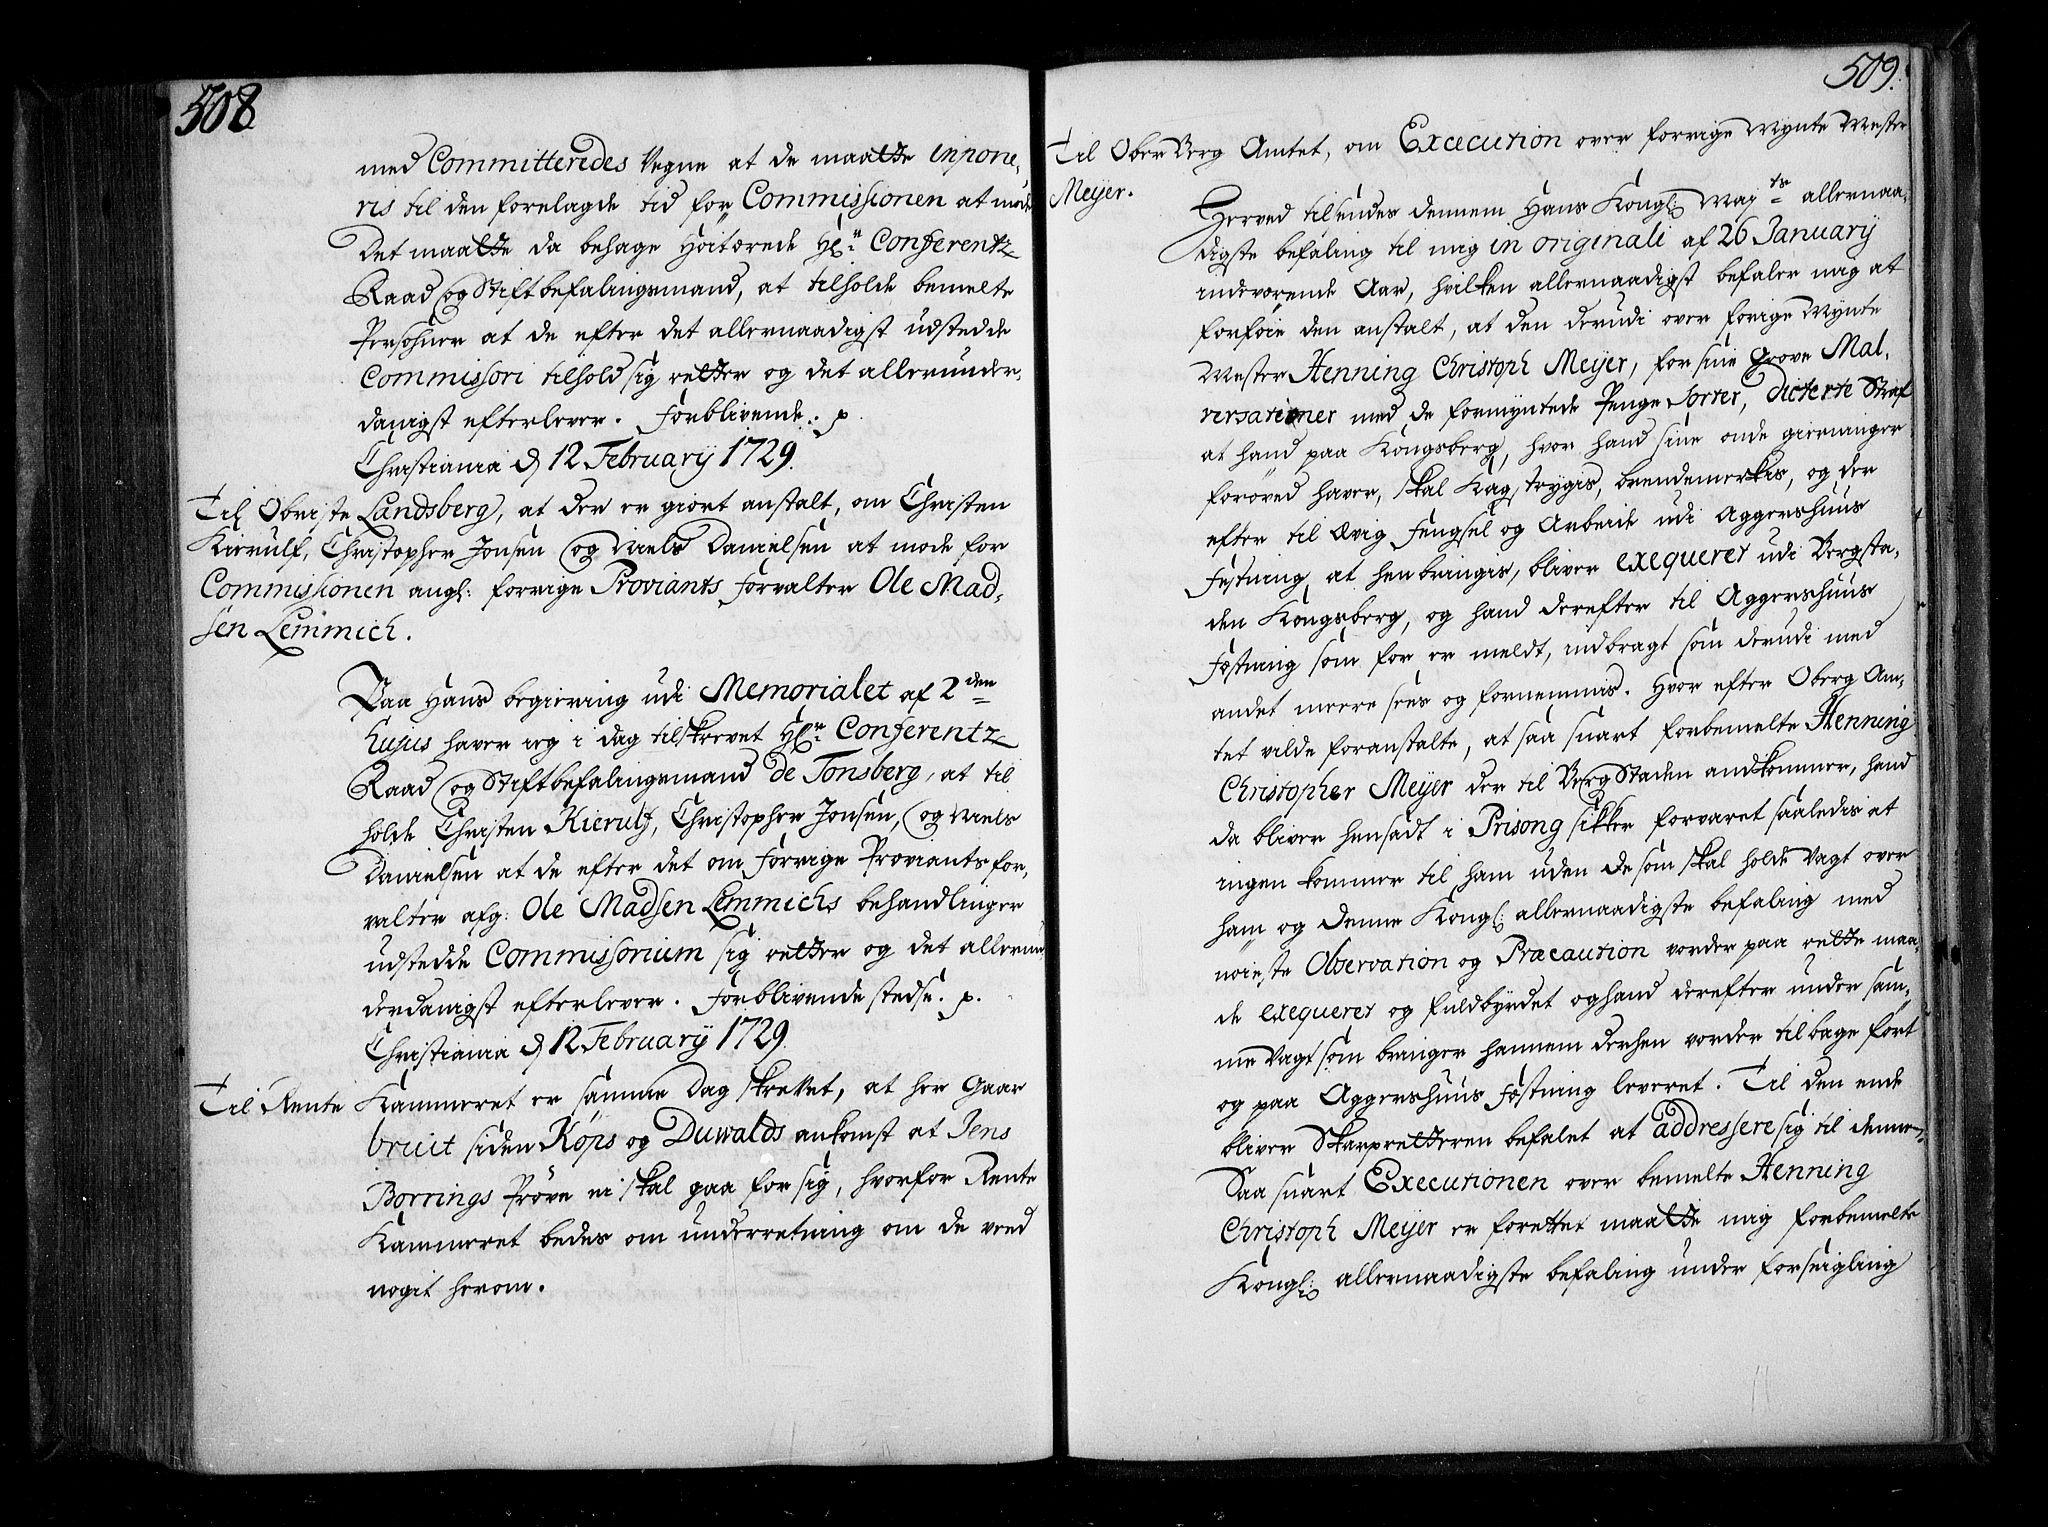 508
med Committeredes Vegne at de maatte inpone-
ris til den forelagde tid for Commissionen at møde
Det maatte da behage Høitærede Hr: Conferentz
Raad og Stiftbefalingsmand, at tilholde bemelte
Persohner at de efter det allernaadigst udstedde
Commissori tilhold sig retter og det allerunder-
danigst efterlever. Forblivende. p.
Christiania d 12 February 1729.
Til Obriste Landsberg, at der er giort anstalt, om Christen
Kierulf, Christopher Jonsen og Niels Danielsen at møde for
Commissionen angl: forrige Proviants Forvalter Ole Mad-
sen Lemmich.
Paa Hans begiering udi Memorialet af 2den
hujus haver ieg i dag tilskrevet Hr: Conferentz
Raad og Stiftbefalingsmand de Tonsberg, at til
holde Christen Kierulf, Christopher Jonsen, og Niels
Danielsen at de efter det om forrige Proviants for-
valter afg: Ole Madsen Lemmichs behandlinger
udstedde Commissorium sig retter og det allerun-
derdanigst efterlever. Forblivende stedse. p.
Christiania d 12 February 1729.
Til Rente Kammeret er samme Dag skrevet, at her Gaar
bruit siden Köps og Duwalds ankomst at Jens
Borrings Prøve ei skal gaa for sig, hvorfor Rente
Kammeret bedes om underretning om de veed
nogit herom.
509.
Til Ober Berg Amtet, om Execution over forrige Mynte Mester
Meyer.
Herved tilsendes dennem Hans Kongl: Mayts allernaa-
digste befaling til mig in originali af 26 January
indeværende Aar, hvilken allernaadigst befaler mig at
forføie den anstalt, at den derudi over forige Mynte
Mester Henning Christoph Meyer, for sine grove Mal-
versationer med de formyntede Penge Sorter, dicterte Straf
at hand paa Kongsberg, hvor hand sine onde gierninger
forøved haver, skal Kagstrygis, brendemerkis, og der
efter til Evig Fengsel og Arbeide udi Aggershuus
Festning, at henbringis, bliver exequeret udi Bergsta-
den Kongsberg, og hand derefter til Aggershuus
Festning som for er meldt, indbragt som derudi med
andet meere sees og fornemmis. Hvor efter Oberg Am-
tet vilde foranstalte, at saa snart forbemelte Henning
Christopher Meyer der til Berg Staden andkommer, hand
da bliver hensadt i Prisong sikker forvaret saaledis at
ingen kommer til ham uden de som skal holde Vagt over
ham og denne Kongl: allernaadigste befaling med
nøieste Observation og Præcaution vorder paa rette maa-
de exequeret og fuldbyrdet og hand derefter under sam-
me Vagt som bringer hannem derhen vorder tilbage ført
og paa Aggershuus Festning leveret. Til den ende
bliver Skarpretteren befalet at addressere sig til dennem.
Saa snart Executionen over bemelte Henning
Christoph Meyer er forettet maatte mig forbemelte
Kongl: allernaadigste befaling under forseigling